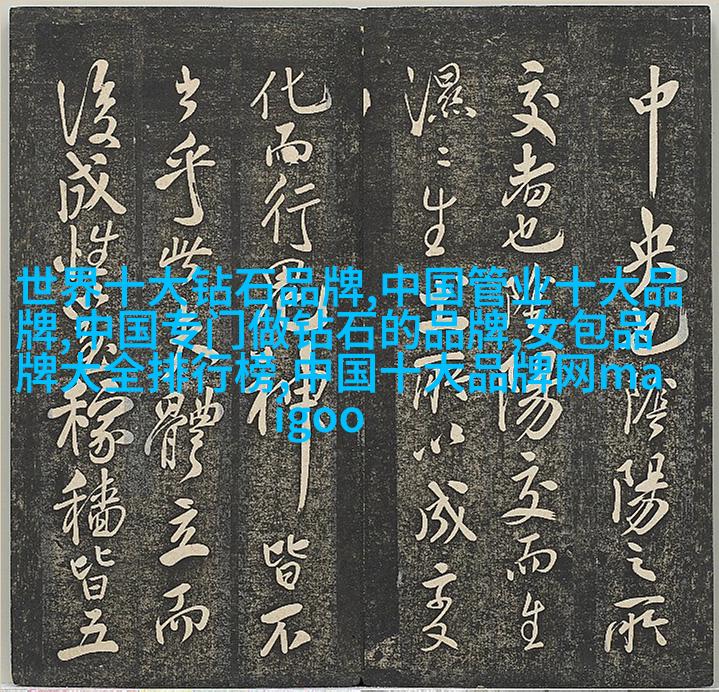 世界十大钻石品牌,中国管业十大品
牌,中国专门做钻石的品牌,女包品
牌大全排行榜,中国十大品牌网ma
igoo
中央陰陽之所
交者也陰陽交而生
濕〻生土所以成变
化而行鬼神皆不
乎體立而
後成性稼穡皆五